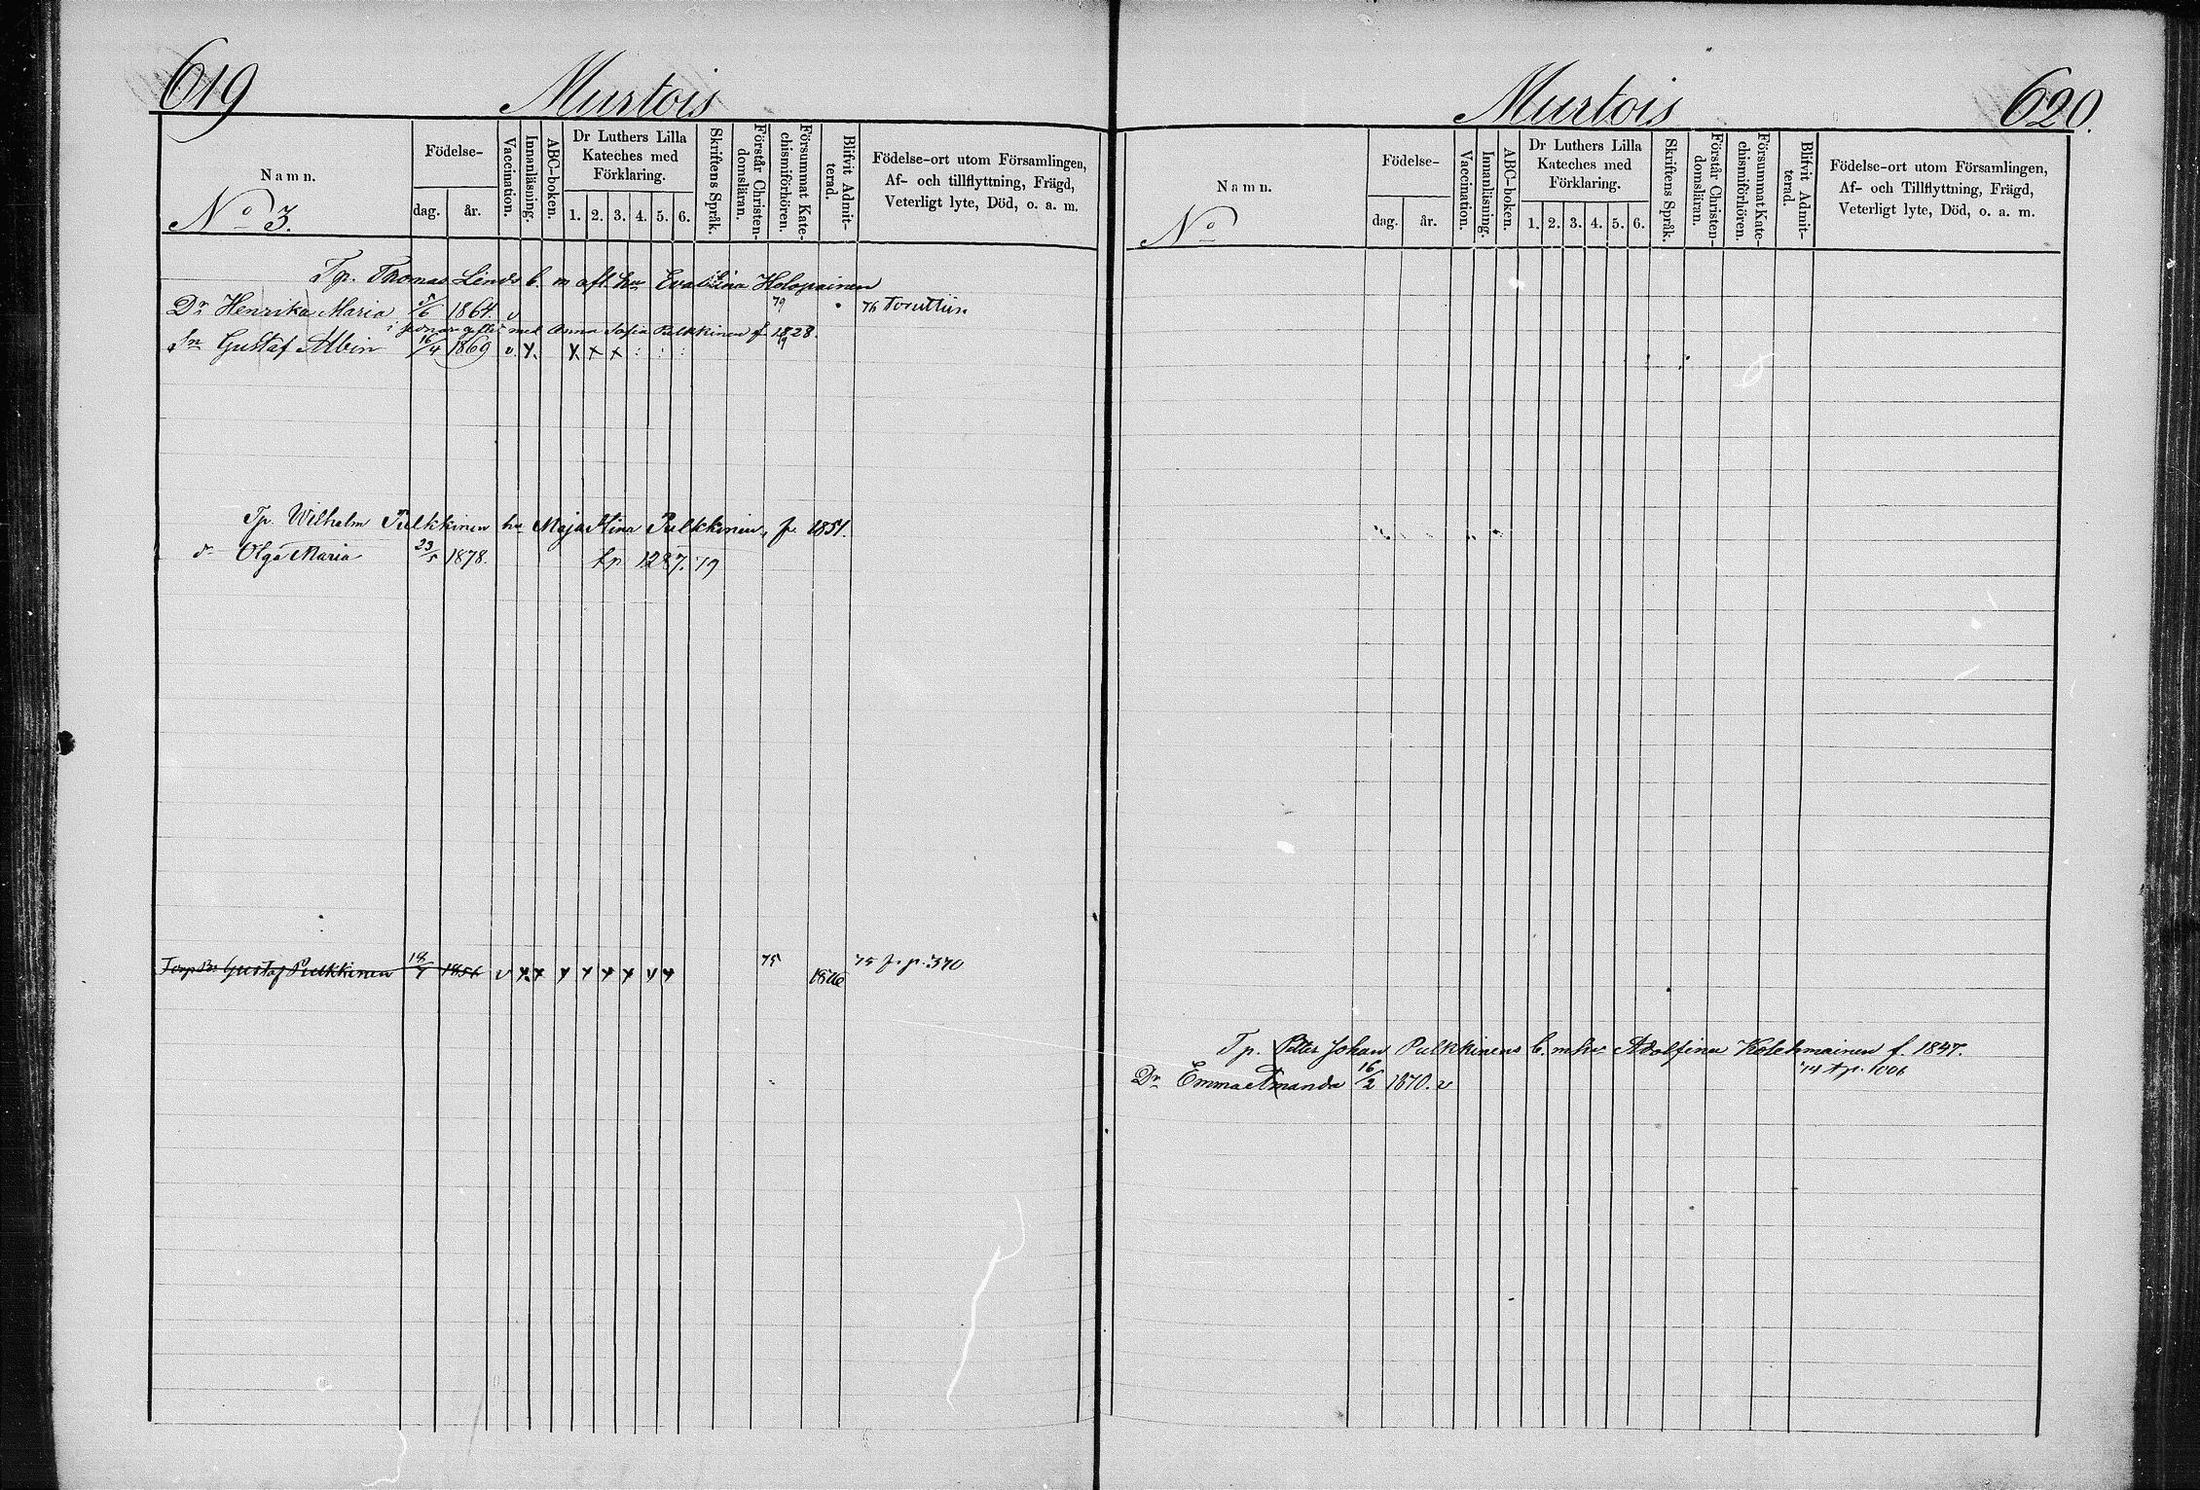 619
Murtois
Namn.
Födelse-
dag.
år.
Vaccination.
Innanläsning.
ABC-boken.
Dr Luthers Lilla
Kateches med
Förklaring.
1. 2. 3. 4. 5. 6.
Skriftens Språk.
Förstår Christen-
domsläran.
Försummat Kate-
chismiförhören.
Blifvit Admit-
terad.
Födelse-ort utom Församlingen,
Af- och tillflyttning, Frägd,
Veterligt lyte, Död, o. a. m.
No 3.
Tp. Thomas Linds b. m afl. hu Eva Stina Holopainen
Dr Henrika Maria 5/6 1864. v 79
i senare gifte med Anna Sofia Pulkkinen f 1828.
Sn Gustaf Albin 16/4 1869 v. x. x x x
Tp. Wilhelm Pulkkinen hu Maja Stina Pulkkinen, f. 1851.
dr Olga Maria 23/5 1878. tp 1287. 79
Torp Br Gustaf Pulkkinen 18/4 1856 v x x x x x x v x 75 1876 75 p. p. 370
Murtois
620.
Namn.
Födelse-
dag.
år.
Vaccination.
Innanläsning.
ABC-boken.
Dr Luthers Lilla
Kateches med
Förklaring.
1. 2. 3. 4. 5. 6.
Skriftens Språk.
Förstår Christen-
domsläran.
Försummat Kate-
chismiförhören.
Blifvit Admit-
terad.
Födelse-ort utom Församlingen,
Af- och Tillflyttning, Frägd,
Veterligt lyte, Död, o. a. m.
No
Tp. Petter Johan Pulkkinens b. m hu Adolfina Kolehmainen f. 1847.
Dr Emma Amanda 16/2 1870. v 74 tp. 1006